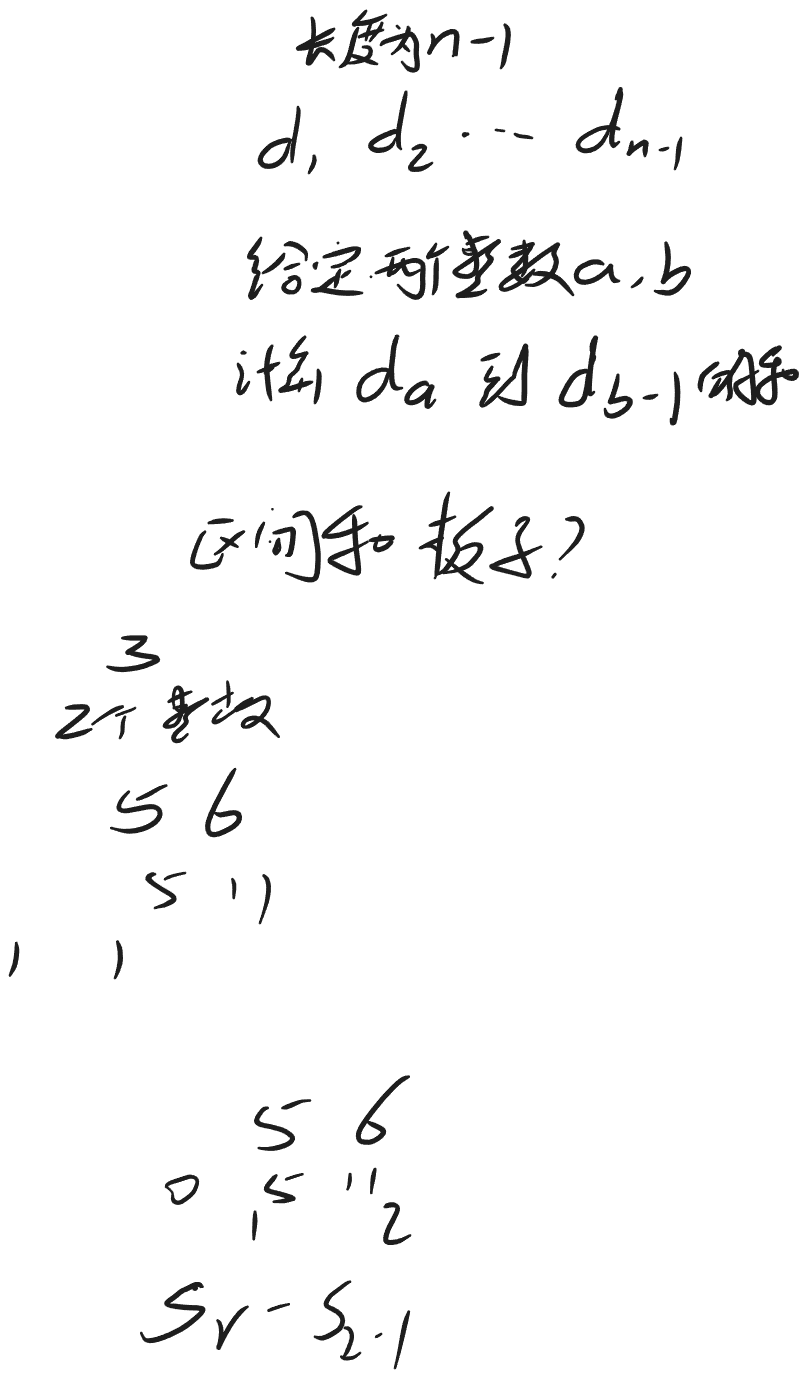 长度为n-1
d₁ d₂ ... dₙ₋₁
给定两个整数a,b
计算 dₐ 到 d_{b-1} 的和
区间和 板子?
3
2个整数
5 6
5 11
1 1
5 6
0 5 11
1 2
Sᵣ - S₂₋₁